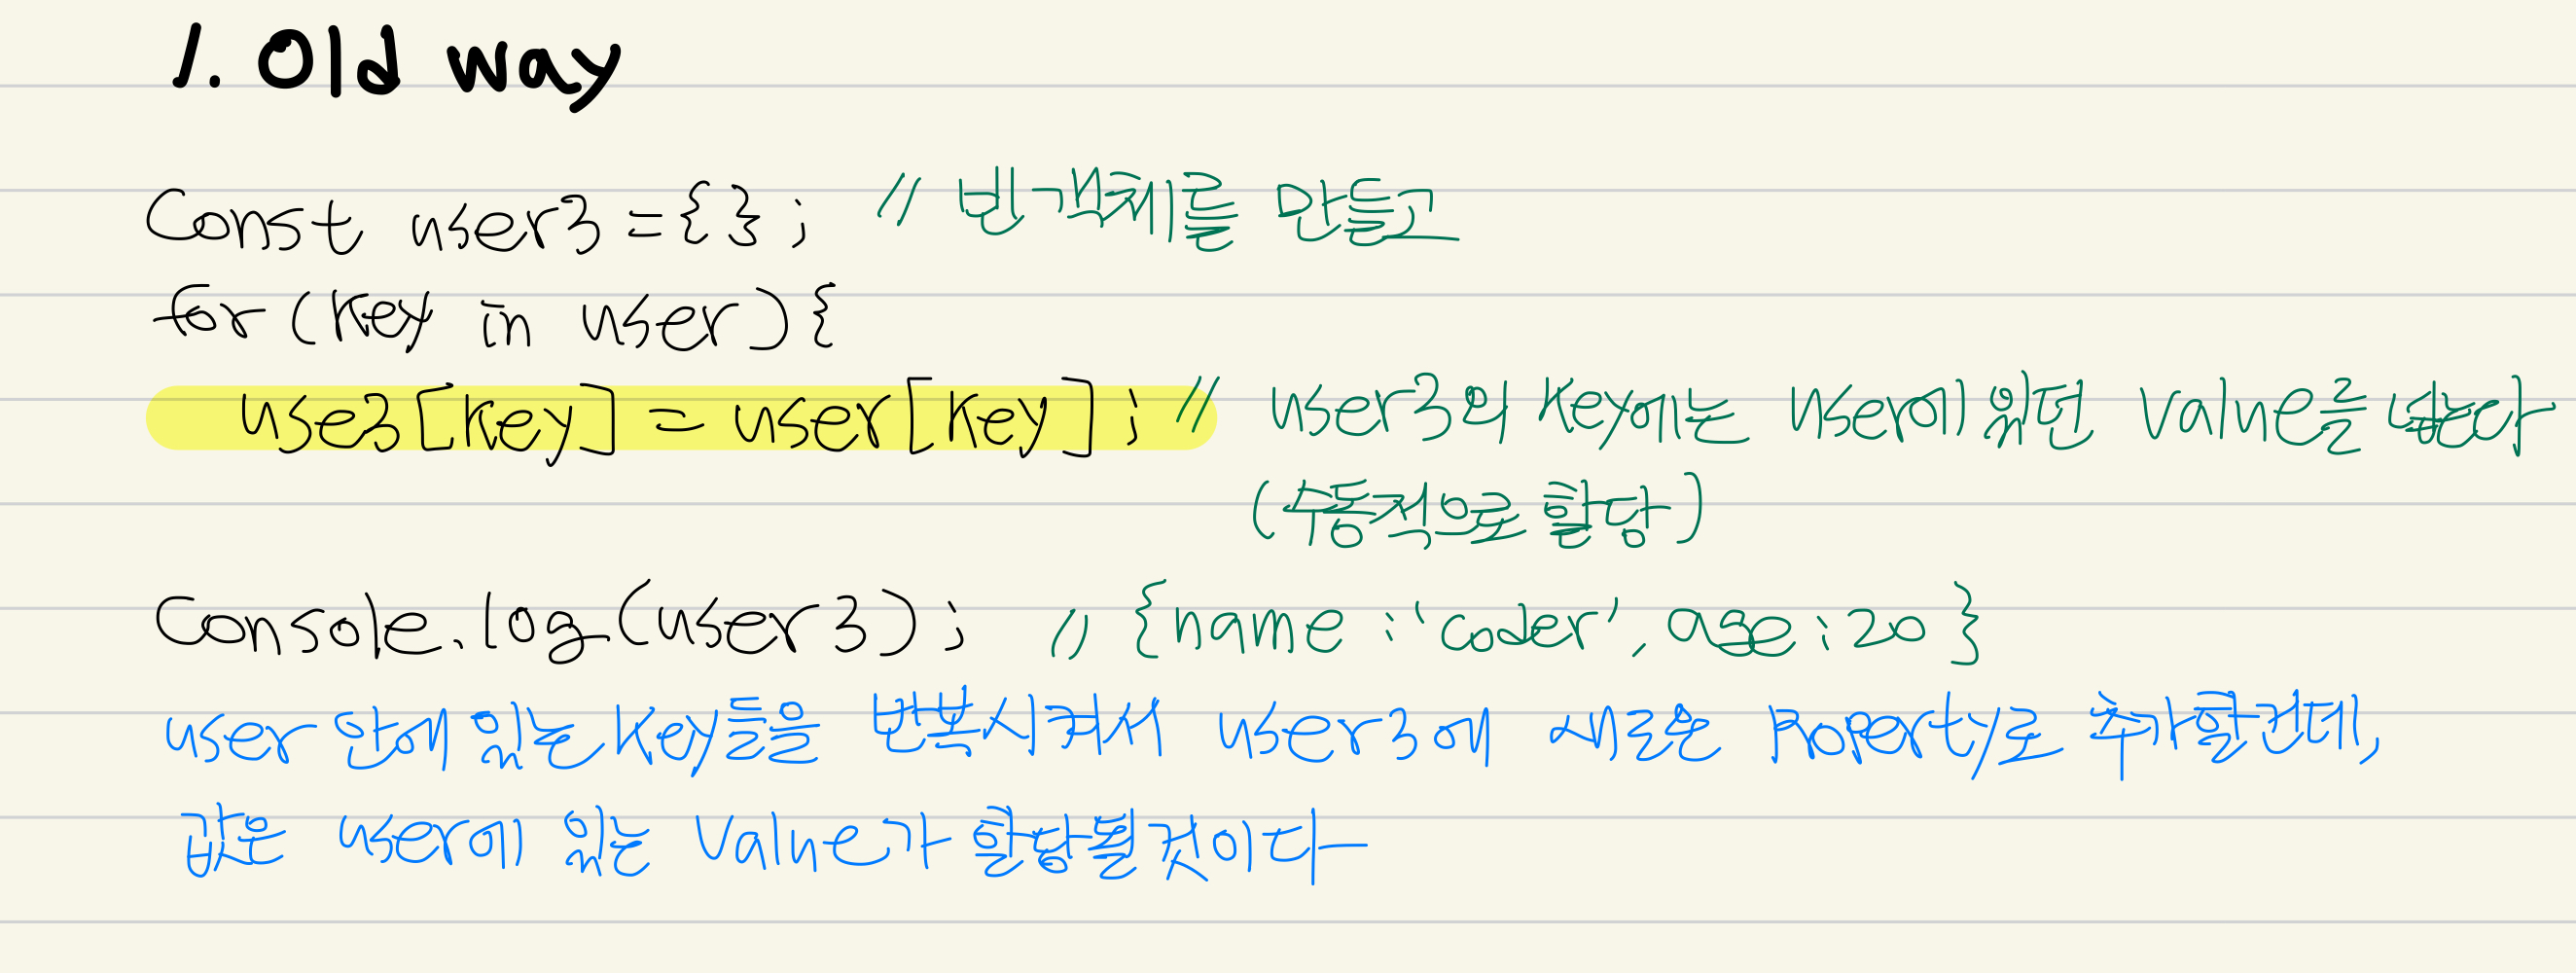 1. Old way
Const user3 = {}; // 빈 객체를 만들고
for (key in user) {
use3[key] = user[key]; // user3의 key에는 user에 있던 value를 넣는다
(수동적으로 할당)
Console.log(user3); // {name : 'coder', age : 20}
user 안에 있는 key들을 반복시켜서 user3에 새로운 Property로 추가할건데,
값은 user에 있는 value가 할당될것이다